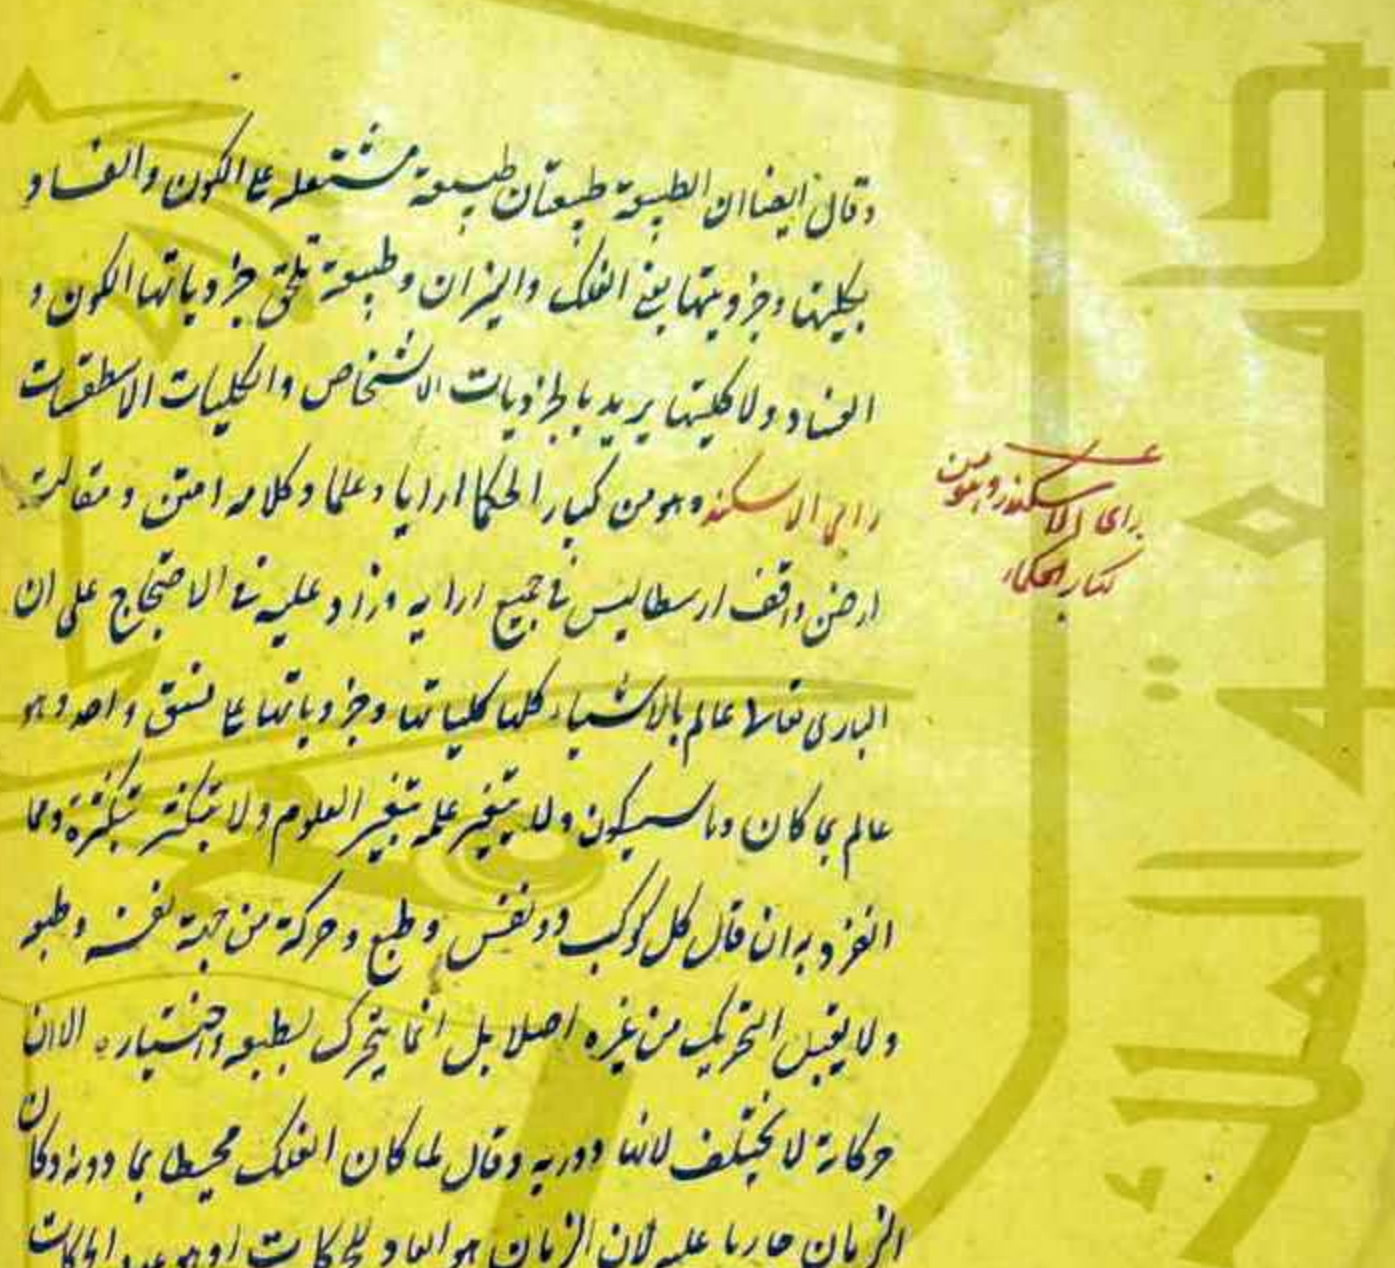 وقال ايضا ان الطبيعة طبيعتان طبيعة مشتعله على الكون والفساد
بكليتها وجزويتها يعنى الفلك والنيران وطبيعة تلحق جزوياتها الكون و
الفساد ولا كليتها يريد بالجزويات الاشخاص والكليات الاسطقسات
راى الاسكند وهو من كبار الحكما ارايا وعلما وكلامه امتن ومقالته
ارصن وافق ارسطاليس فى جميع ارايه وزاد عليه فى الاحتجاج على ان
البارى تعالى عالم بالاشياء كلها كلياتها وجزوياتها على نسق واحد وهو
عالم بما كان وما سيكون ولا يتغير علمه بتغير العلوم ولا يتكثر بتكثره ومما
انفرد به ان قال كل كوكب ذو نفس وطبع وحركة من جهة نفسه وطبعه
ولا يقبل التحريك من غيره اصلا بل انما يتحرك بطبعه واختياره الا ان
حركاته لا تختلف لانها دوريه وقال لما كان الفلك محيطا بما دونه وكان
الزمان جاريا عليه لان الزمان هو العاد للحركات او هو عدد الحركات
راى الاسكندر وهو من
كبار الحكماء